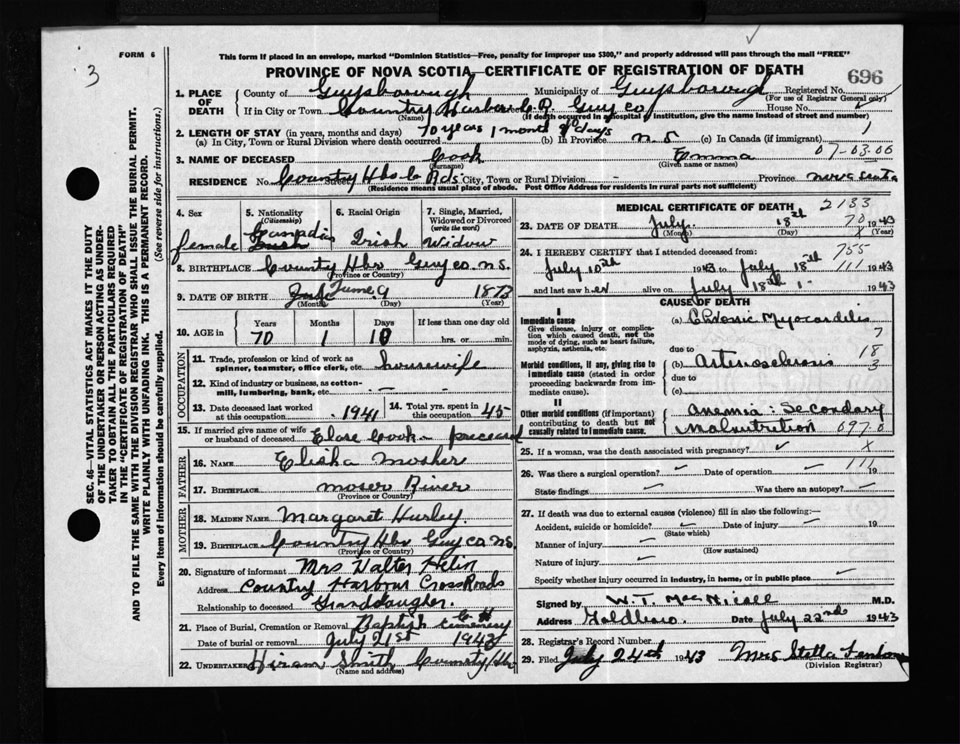 FORM 6
3
This form if placed in an envelope, marked "Dominion Statistics—Free, penalty for improper use $300," and properly addressed will pass through the mail "FREE"
PROVINCE OF NOVA SCOTIA—CERTIFICATE OF REGISTRATION OF DEATH
696
SEC. 46—VITAL STATISTICS ACT MAKES IT THE DUTY
OF THE UNDERTAKER OR PERSON ACTING AS UNDER-
TAKER TO OBTAIN ALL THE PARTICULARS REQUIRED
IN THE "CERTIFICATE OF REGISTRATION OF DEATH"
AND TO FILE THE SAME WITH THE DIVISION REGISTRAR WHO SHALL ISSUE THE BURIAL PERMIT.
WRITE PLAINLY WITH UNFADING INK. THIS IS A PERMANENT RECORD.
Every item of information should be carefully supplied. (See reverse side for instructions.)
1. PLACE OF DEATH County of Guysborough Municipality of Guysborough Registered No.
(For use of Registrar General only)
If in City or Town Country Harbour C. R. Guy co House No.
(Name) (If death occurred in a hospital or institution, give the name instead of street and number)
2. LENGTH OF STAY (in years, months and days) 70 years 1 month days
(a) In City, Town or Rural Division where death occurred (b) In Province n.s (c) In Canada (if immigrant)
3. NAME OF DECEASED Cook Emma 07-03-06
(Surname) (Given name or names)
RESIDENCE No. Country Hbr C Rds Street City, Town or Rural Division - Province nova scotia
(Residence means usual place of abode. Post Office Address for residents in rural parts not sufficient)
4. Sex female
5. Nationality (Citizenship) Canadian
6. Racial Origin Irish
7. Single, Married, Widowed or Divorced (write the word) Widow
8. BIRTHPLACE Country Hbr Guy co. n.s.
(Province or Country)
9. DATE OF BIRTH June 9 1873
(Month) (Day) (Year)
10. AGE in Years Months Days If less than one day old
70 1 10 hrs. or min.
OCCUPATION
11. Trade, profession or kind of work as spinner, teamster, office clerk, etc. housewife
12. Kind of industry or business, as cotton-mill, lumbering, bank, etc. — —
13. Date deceased last worked at this occupation 1941
14. Total yrs. spent in this occupation 45
15. If married give name of wife or husband of deceased Cook
FATHER
16. NAME Elisha Mosher
17. BIRTHPLACE Moser River
(Province or Country)
MOTHER
18. MAIDEN NAME Margaret Hurley
19. BIRTHPLACE Country Hbr Guy co ns.
(Province or Country)
20. Signature of informant Mrs Walter
Address Country Harbour CrossRoads
Relationship to deceased Granddaugher.
21. Place of Burial, Cremation or Removal Baptist Cemetery C. H
Date of burial or removal July 21st 1943
22. UNDERTAKER Hiram Smith Country Hbr
(Name and address)
MEDICAL CERTIFICATE OF DEATH 2183
23. DATE OF DEATH July 18th 1943
70
(Month) (Day) (Year)
24. I HEREBY CERTIFY that I attended deceased from: 755
July 10th 1943 to July 18th 1943
111
and last saw her alive on July 18th 1943
CAUSE OF DEATH
I
Immediate cause
Give disease, injury or complication which caused death, not the mode of dying, such as heart failure, asphyxia, asthenia, etc.
(a) Chronic Myocarditis
7
due to
Morbid conditions, if any, giving rise to immediate cause (stated in order proceeding backwards from immediate cause).
(b) Arteriosclerosis
18
3
due to
(c)
II
Other morbid conditions (if important) contributing to death but not causally related to immediate cause.
Anemia: Secondary
Malnutrition 697.0
25. If a woman, was the death associated with pregnancy? X
26. Was there a surgical operation? Date of operation 19
111
State findings Was there an autopsy?
27. If death was due to external causes (violence) fill in also the following:—
Accident, suicide or homicide? Date of injury 19
(State which)
Manner of injury
(How sustained)
Nature of injury
Specify whether injury occurred in industry, in home, or in public place
Signed by W. T. MacNicoll M.D.
Address Goldboro. Date July 22nd 1943
28. Registrar's Record Number
29. Filed July 24th 1943 Mrs Stella
(Division Registrar)